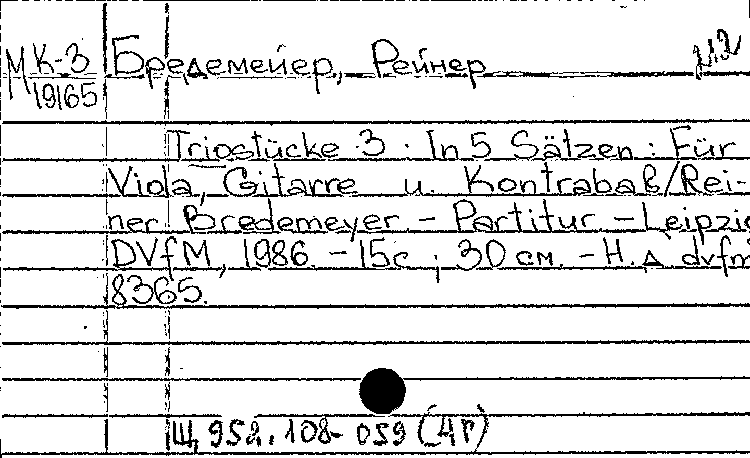 МК-3 Бредемейер, Рейнер
19165
Triostücke 3 : In 5 Sätzen : Für
Viola, Gitarre u. Kontrabaß/Rei-
ner Bredemeyer. - Partitur. - Leipzig
DVfM, 1986. - 15с ; 30 см. - Н. Д. dvfm
8365.
Щ 952.108-059 (4Г)